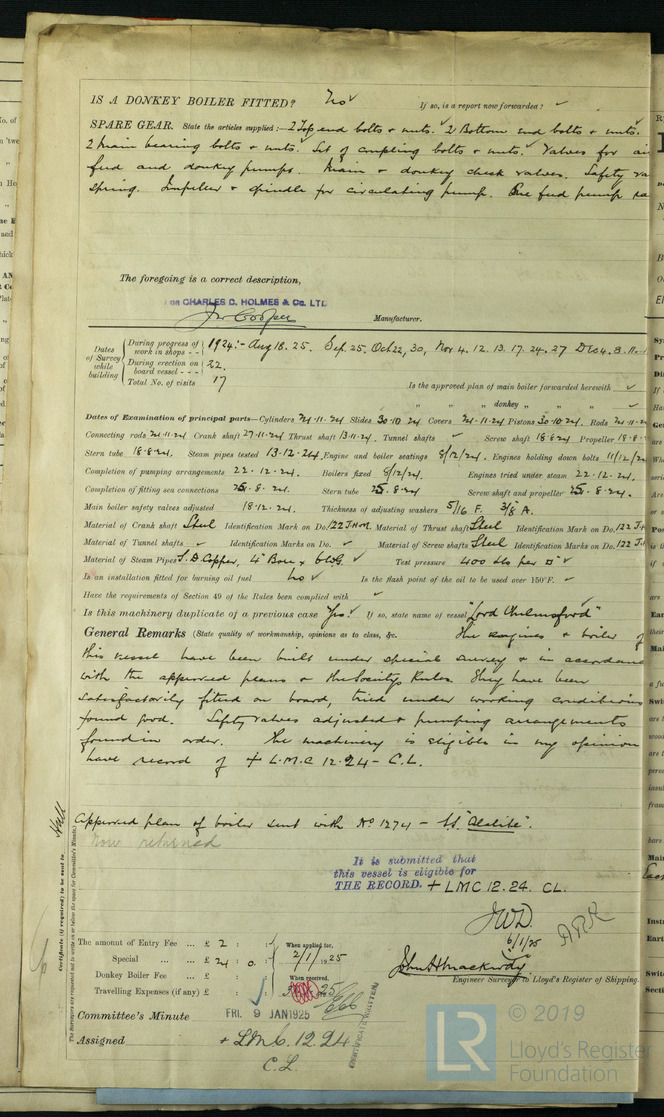 IS A DONKEY BOILER FITTED? No ✓ If so, is a report now forwarded? ✓
SPARE GEAR. State the articles supplied:— 2 Top end bolts & nuts. ✓ 2 Bottom end bolts & nuts. ✓
2 Main bearing bolts & nuts. ✓ Set of coupling bolts & nuts. ✓ Valves for air
feed and donkey pumps. Main & donkey check valves. Safety va
Spring. Impeller & spindle for circulating pump. One feed pump
The foregoing is a correct description,
FOR CHARLES D. HOLMES & Co. LTD
Manufacturer.
Dates of Survey while building
During progress of work in shops - - 1924:- Aug 18. 25. Sep. 25. Oct 22, 30, Nov 4. 12. 13. 17. 24. 27 Dec 4. 8. 11.
During erection on board vessel - - - 22.
Total No. of visits 17
Is the approved plan of main boiler forwarded herewith ✓
" " " donkey " " " ✓
Dates of Examination of principal parts—Cylinders 24.11.24 Slides 30.10.24 Covers 24.11.24 Pistons 30.10.24. Rods 24.11.2
Connecting rods 24.11.24 Crank shaft 27.11.24 Thrust shaft 13.11.24. Tunnel shafts ✓ Screw shaft 18.8.24 Propeller 18.8.
Stern tube 18.8.24. Steam pipes tested 13.12.24. Engine and boiler seatings 8/12/24. Engines holding down bolts 11/12/2
Completion of pumping arrangements 22.12.24. Boilers fixed 8/12/24. Engines tried under steam 22.12.24.
Completion of fitting sea connections 25.8.24. Stern tube 25.8.24 Screw shaft and propeller 25.8.24.
Main boiler safety valves adjusted 18.12.24. Thickness of adjusting washers 5/16 F. 3/8 A.
Material of Crank shaft Steel Identification Mark on Do. Material of Thrust shaft Steel Identification Mark on Do.
Material of Tunnel shafts ✓ Identification Marks on Do. ✓ Material of Screw shafts Steel Identification Marks on Do.
Material of Steam Pipes S.D. Copper, 4" Bore x 6 W.G. ✓ Test pressure 400 lbs per □" ✓
Is an installation fitted for burning oil fuel No ✓ Is the flash point of the oil to be used over 150°F. ✓
Have the requirements of Section 49 of the Rules been complied with ✓
Is this machinery duplicate of a previous case Yes. ✓ If so, state name of vessel "Lord Chelmsford"
General Remarks (State quality of workmanship, opinions as to class, &c. The Engines & boiler of
this vessel have been built under special survey & in accordance
with the approved plans & the Society's Rules. They have been
satisfactorily fitted on board, tried under working conditions
found good. Safety valves adjusted & pumping arrangements
found in order. The machinery is eligible in my opinion
have record of + L.M.C 12.24 - C.L.
Approved plan of boiler sent with No 1274 -
Now returned
It is submitted that
this vessel is eligible for
THE RECORD. + LMC 12.24. CL.
JWD.
6/1/25
The amount of Entry Fee ... £ 2 : : When applied for,
Special ... £ 24 : 0 : 2/1/1925
Donkey Boiler Fee ... £ : : When received,
Travelling Expenses (if any) £ : :
Engineer Surveyor to Lloyd's Register of Shipping.
Committee's Minute FRI. 9 JAN 1925
Assigned + L.M.C. 12.24
C.L.
Certificate (if required) to be sent to Hull
The Surveyors are requested not to write on or below the space for Committee's Minute.
© 2019
LR
Lloyd's Register
Foundation